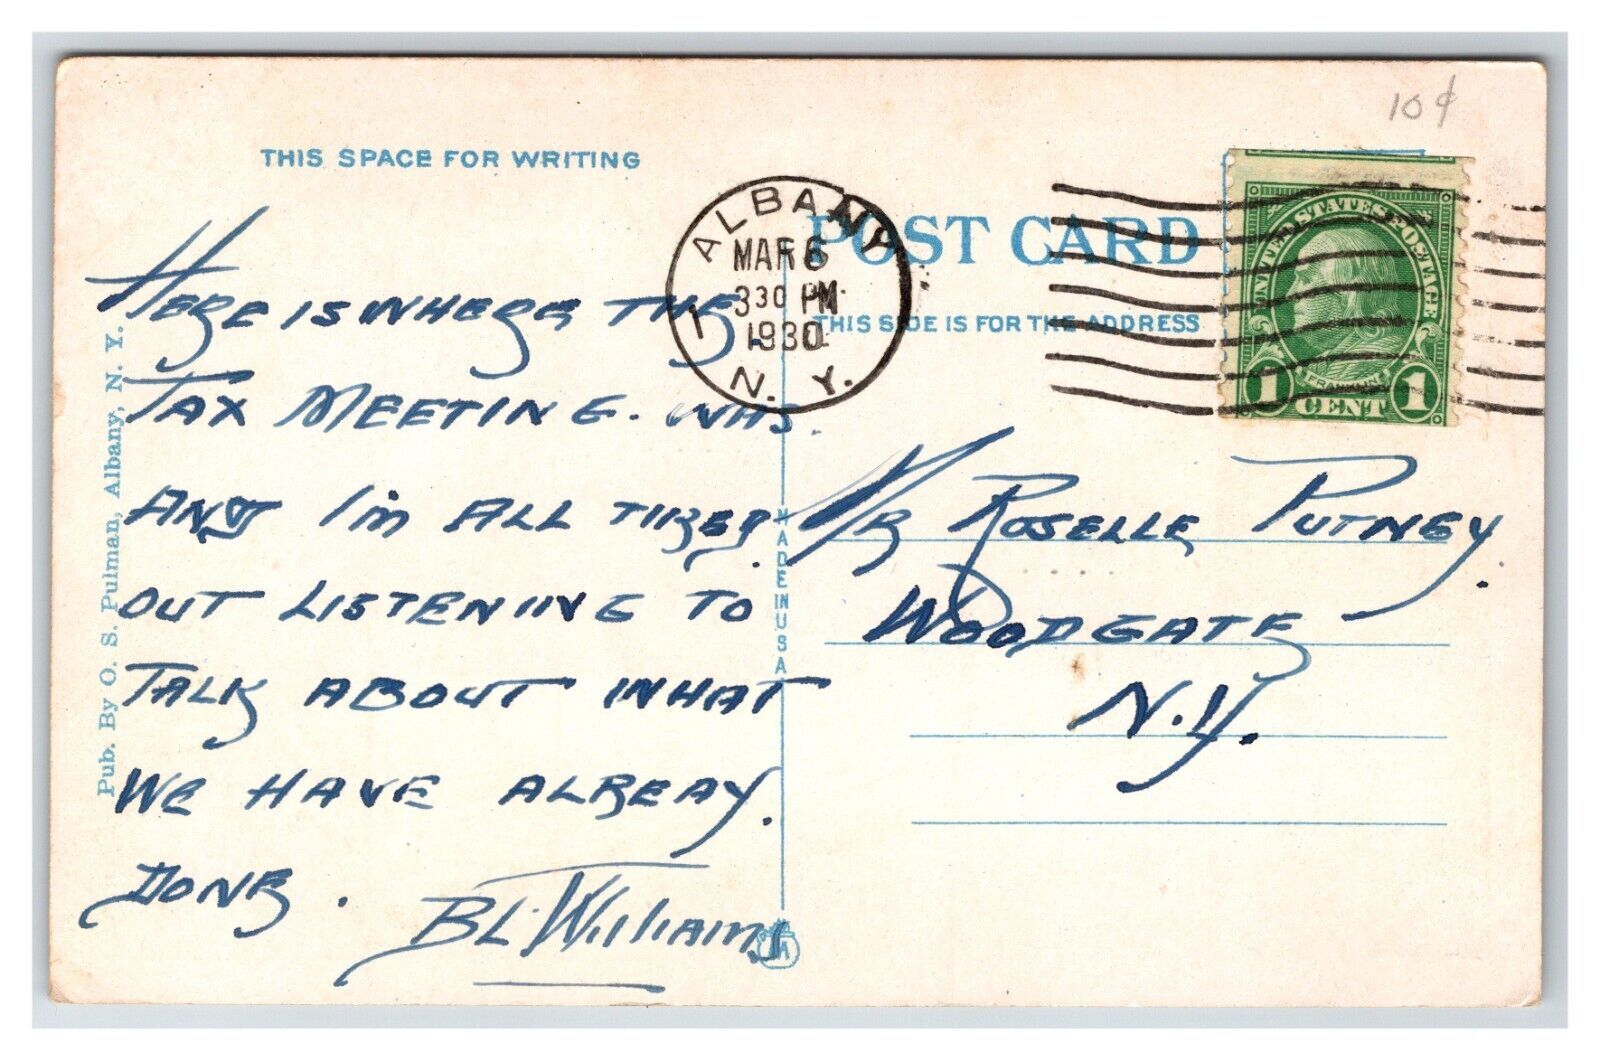 10¢
THIS SPACE FOR WRITING
ALBANY
MAR 6
3 30 PM
1930
1
N. Y.
POST CARD
THIS SIDE IS FOR THE ADDRESS
UNITED STATES POSTAGE
FRANKLIN
1 CENT 1
HERE IS WHERE THE
TAX MEETING. WAS.
AND I'm ALL TIRED.
OUT LISTENING TO
TALK ABOUT WHAT
WE HAVE ALREAY.
DONE.
BL. Williams
MR ROSELLE PUTNEY.
WOODGATE
N.Y.
MADE IN USA
Pub. By O. S. Pulman, Albany, N. Y.